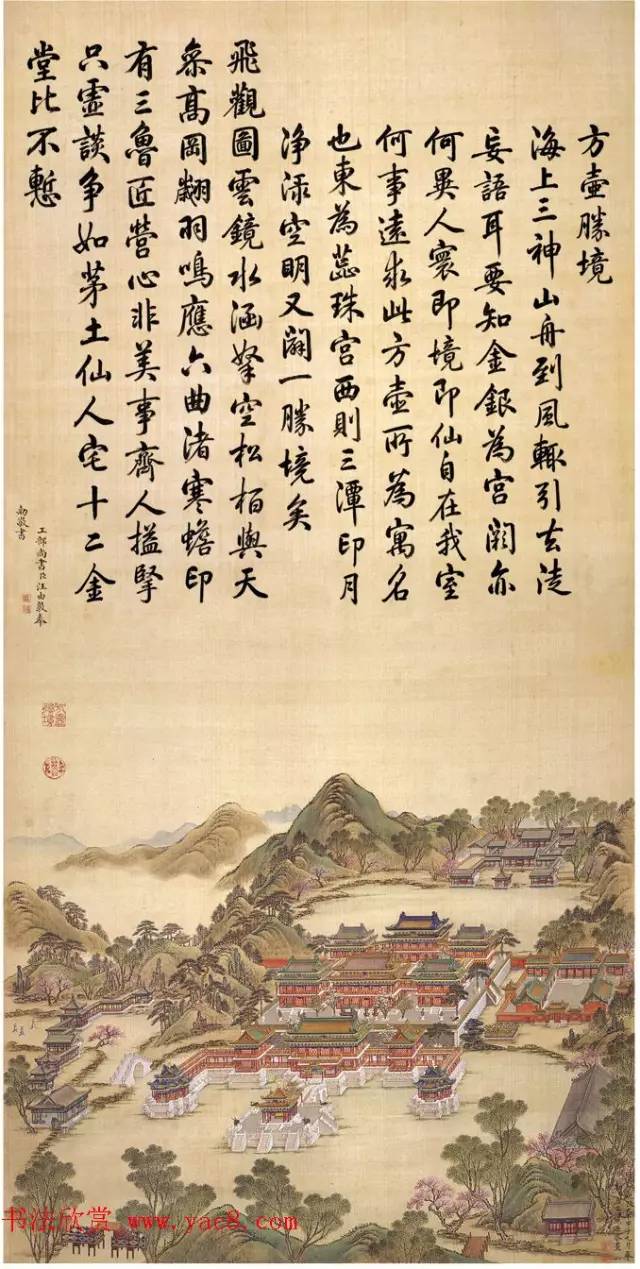 方壺勝境
海上三神山舟到風輒引去徒
妄語耳要知金銀為宮闕亦
何異人寰即境即仙自在我室
何事遠求此方壺所為寓名
也東為蕊珠宮西則三潭印月
净渌空明又闢一勝境矣
飛觀圖雲鏡水涵拏空松栢與天
叅髙岡翽羽鳴應六曲渚寒蟾印
有三魯匠營心非美事齊人搤掔
只虛談争如茅土仙人宅十二金
堂比不慙
工部尚書臣汪由敦奉
勅敬書
书法欣赏 www.yac8.com